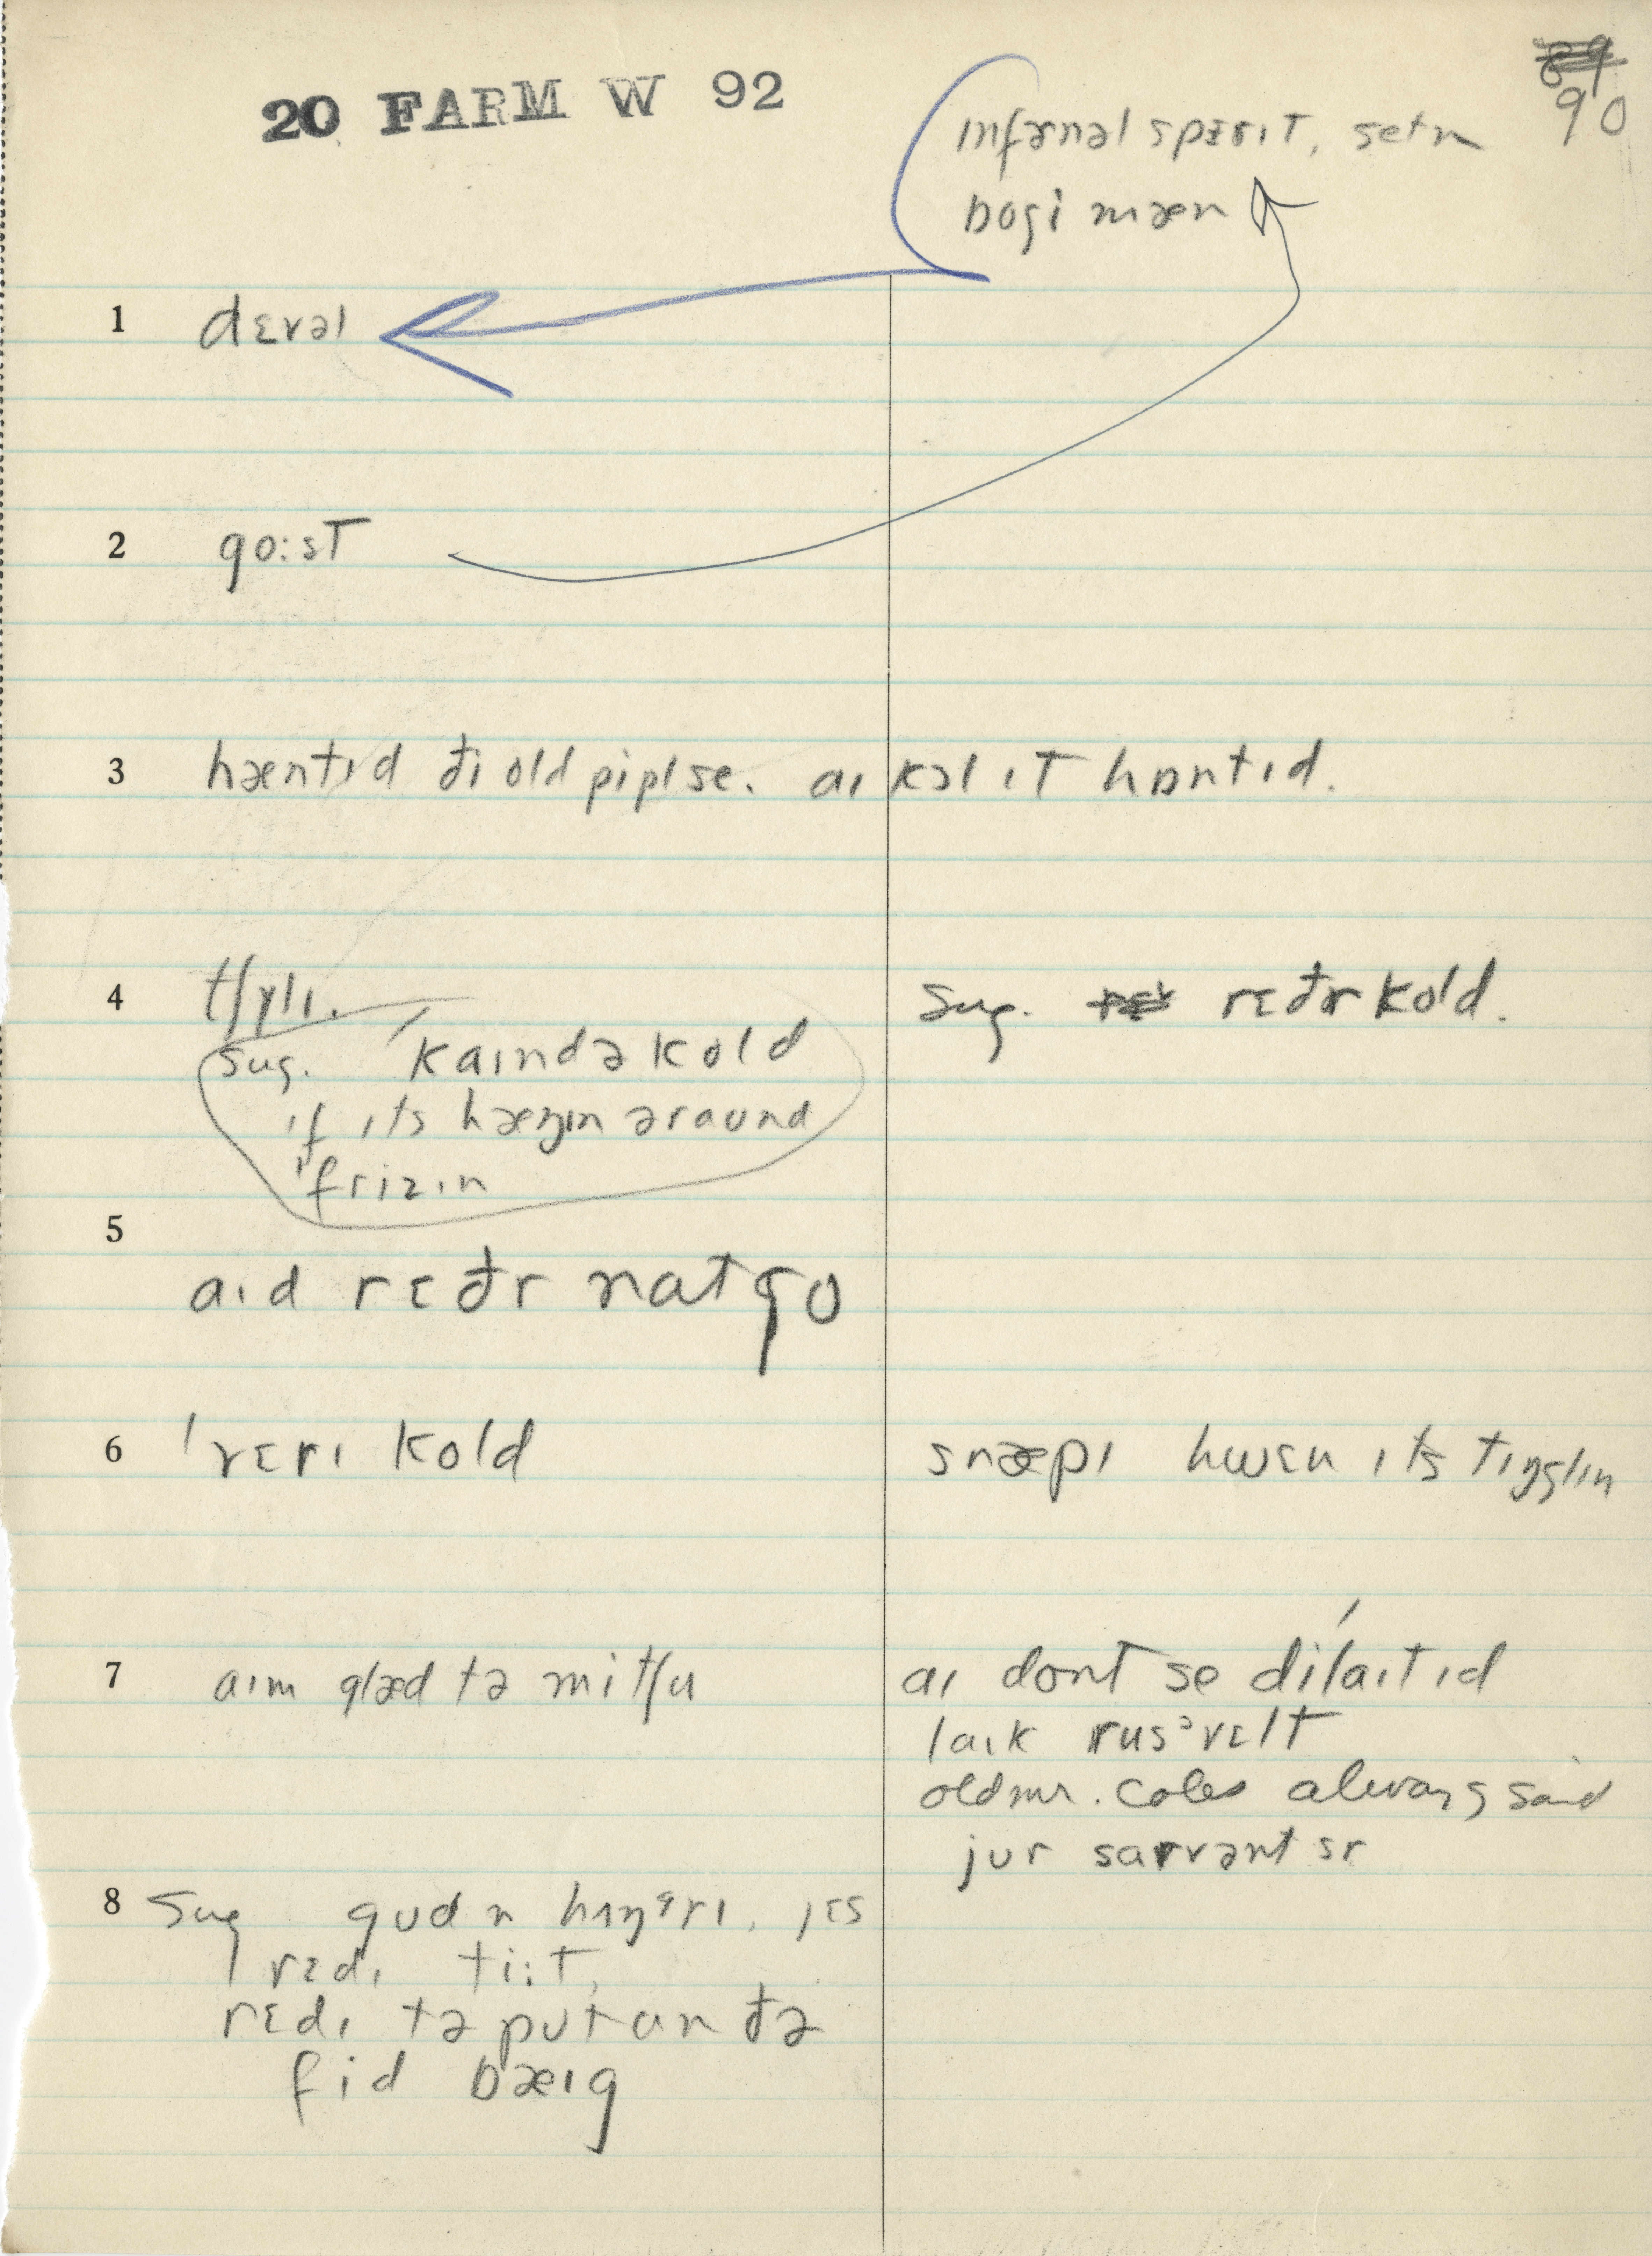 20 FARM W 92
90
ɪnfərnəl spɛrɪt, setn
bogi mæn
1 dɛvəl
2 go:st
3 hæntɪd đi old pipl se. aɪ kəl ɪt hɒntɪd.
4 tʃɪlɪ. sug. rɛđr kold.
sug. kaɪndə kold
ɪf ɪts hæŋɪn əraund
frizɪn
5
aɪd rɛđr nat go
6 ˈvɛrɪ kold snæpɪ hwɛn ɪts tɪŋglɪn
7 aɪm glæd tə mitʃu aɪ dont se dɪlaɪtɪd
laɪk rusᵊvɛlt
old mr. Coles always said
jur sarvənt sr
8 Sug gud n hʌŋgrɪ, jɛs
rɛdɪ ti:t,
rɛdɪ tə put an đə
fid bæɪg